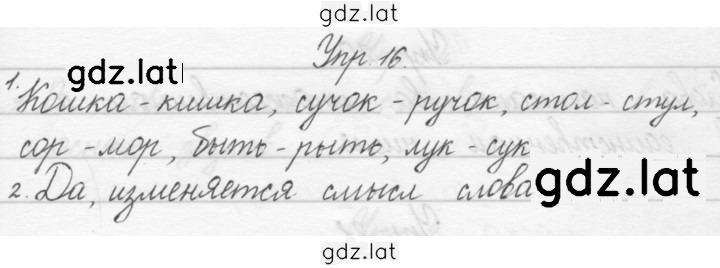 gdz.lat
Упр. 16.
gdz.lat
1. Кошка - кишка, сучок - ручок, стол - стул,
сор - мор, быть - рыть, лук - сук
2. Да, изменяется смысл слова
gdz.lat
gdz.lat